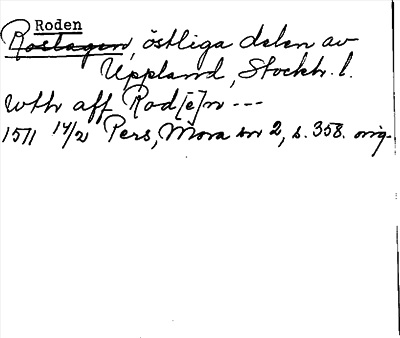 Roden
Roslagen, östliga delen av
Uppland, Stockh. l.
wthr aff Rod[e]n ---
1511 14/2 Pers, Mora nr 2, s. 358. orig.